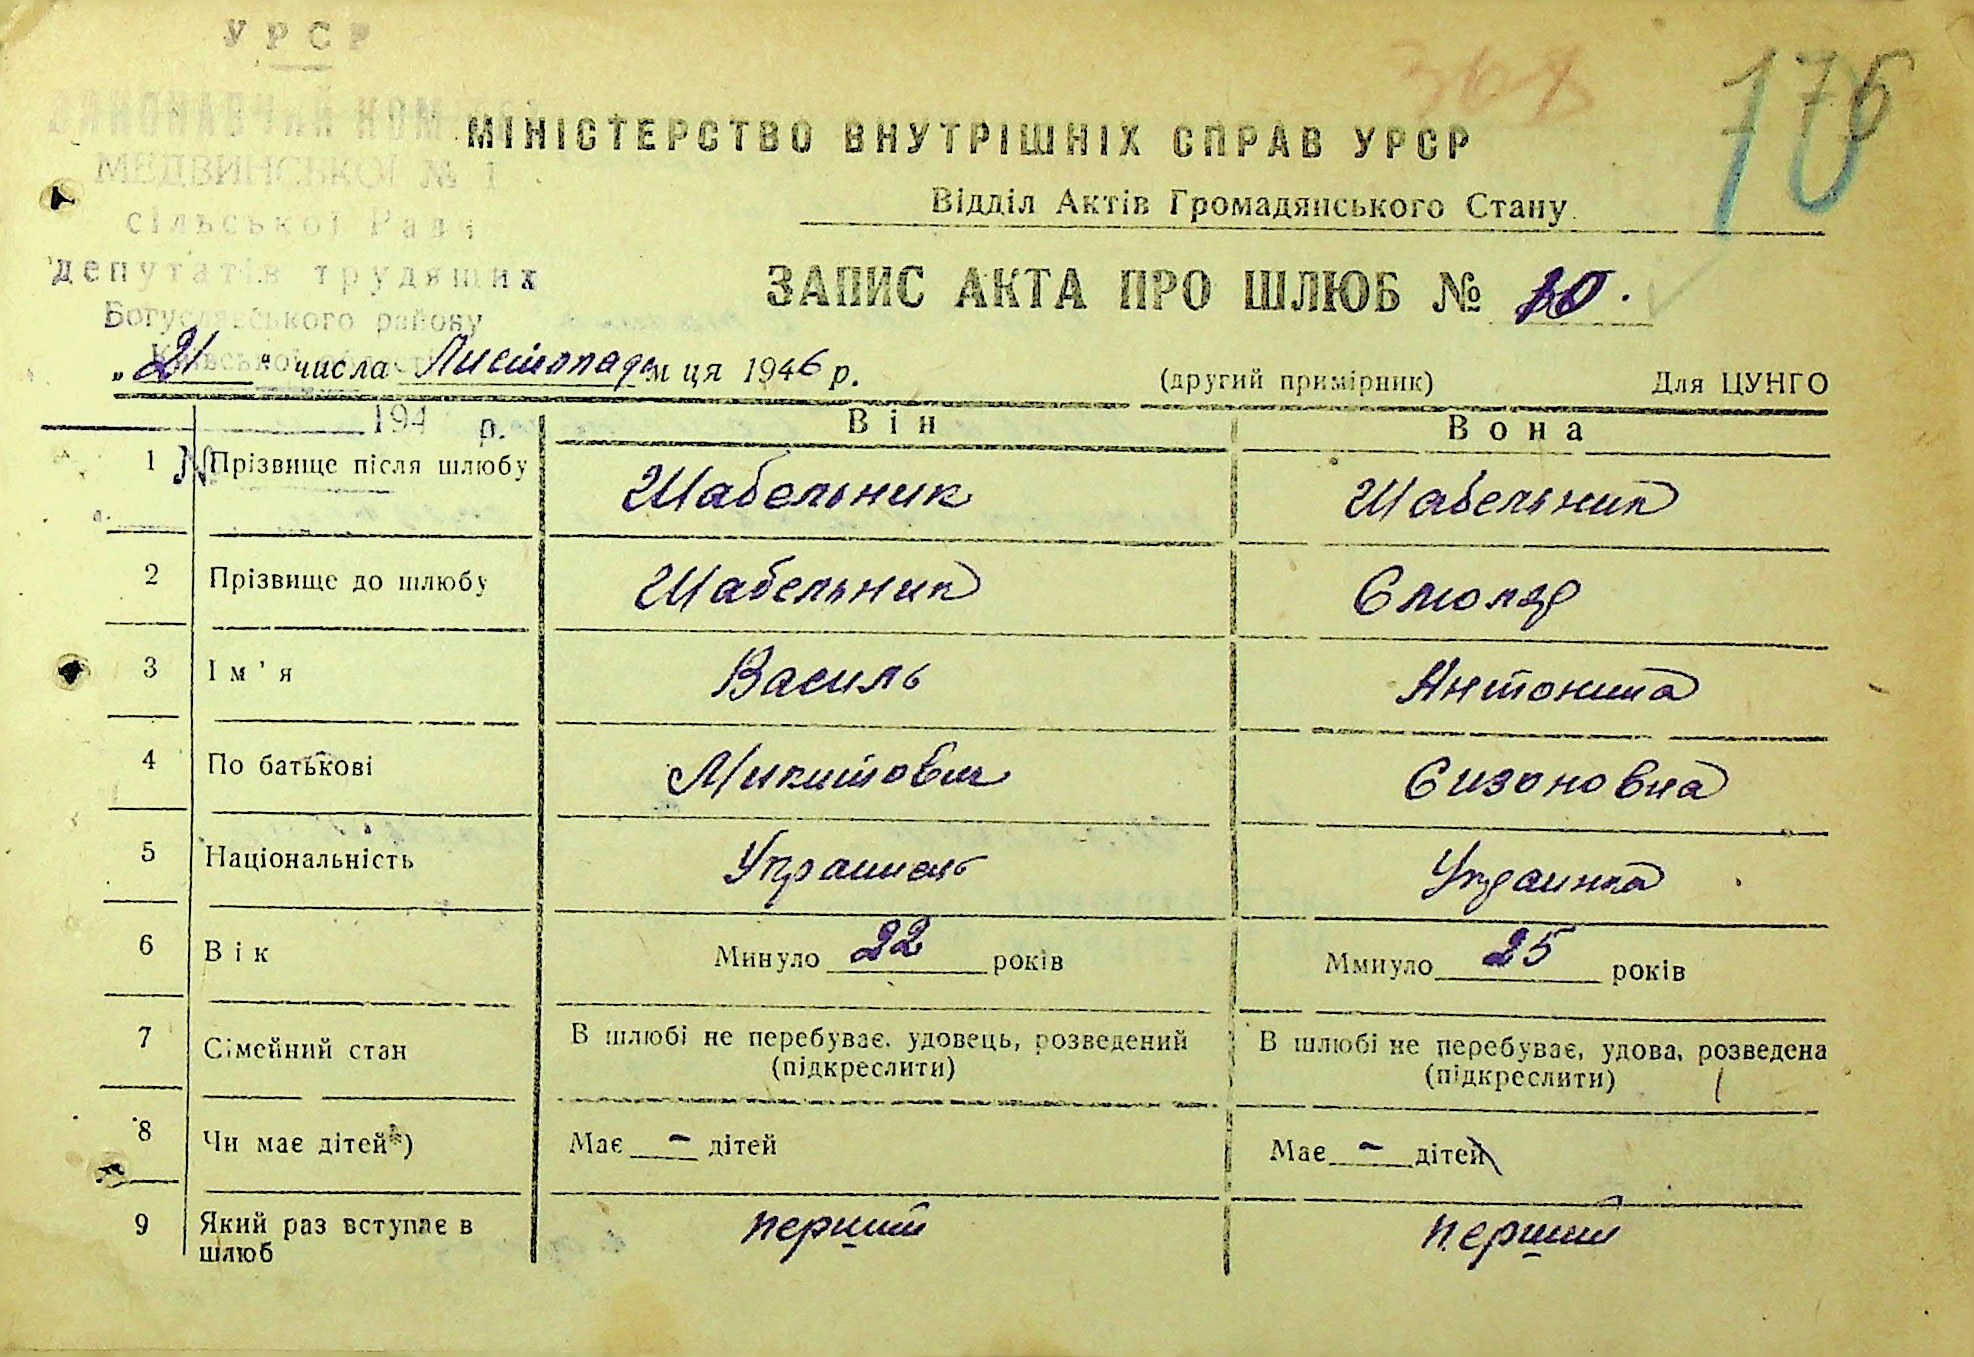 УРСР
ВИКОНАВЧИЙ КОМІТЕТ
МЕДВИНСЬКОЇ № 1
сільської Ради
депутатів трудящих
Богуславського району
Київської області
194 р.
368
176
МІНІСТЕРСТВО ВНУТРІШНІХ СПРАВ УРСР
Відділ Актів Громадянського Стану
ЗАПИС АКТА ПРО ШЛЮБ № 10.
„21" числа Листопада м ця 1946 р.
(другий примірник) Для ЦУНГО
Він Вона
1 Прізвище після шлюбу Шабельник Шабельник
2 Прізвище до шлюбу Шабельник Смоляр
3 Ім'я Василь Антонина
4 По батькові Микитович Сизоновна
5 Національність Украинець Украинка
6 Вік Минуло 22 років Ммнуло 25 років
7 Сімейний стан В шлюбі не перебуває, удовець, розведений В шлюбі не перебуває, удова, розведена
(підкреслити) (підкреслити)
8 Чи має дітей*) Має - дітей Має - дітей
9 Який раз вступає в перший перший
шлюб